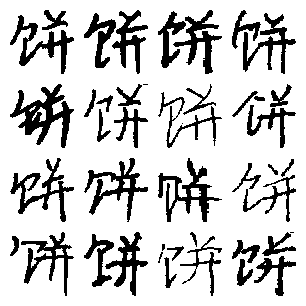 饼饼饼饼
饼饼饼饼
饼饼饼饼
饼饼饼饼